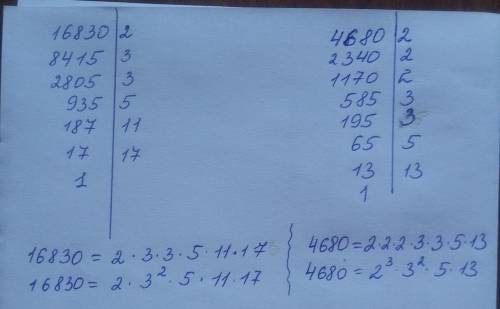 16830 | 2
8415 | 3
2805 | 3
935 | 5
187 | 11
17 | 17
1
4680 | 2
2340 | 2
1170 | 2
585 | 3
195 | 3
65 | 5
13 | 13
1
16830 = 2 · 3 · 3 · 5 · 11 · 17
16830 = 2 · 3² · 5 · 11 · 17
4680 = 2·2·2·3·3·5·13
4680 = 2³ · 3² · 5 · 13